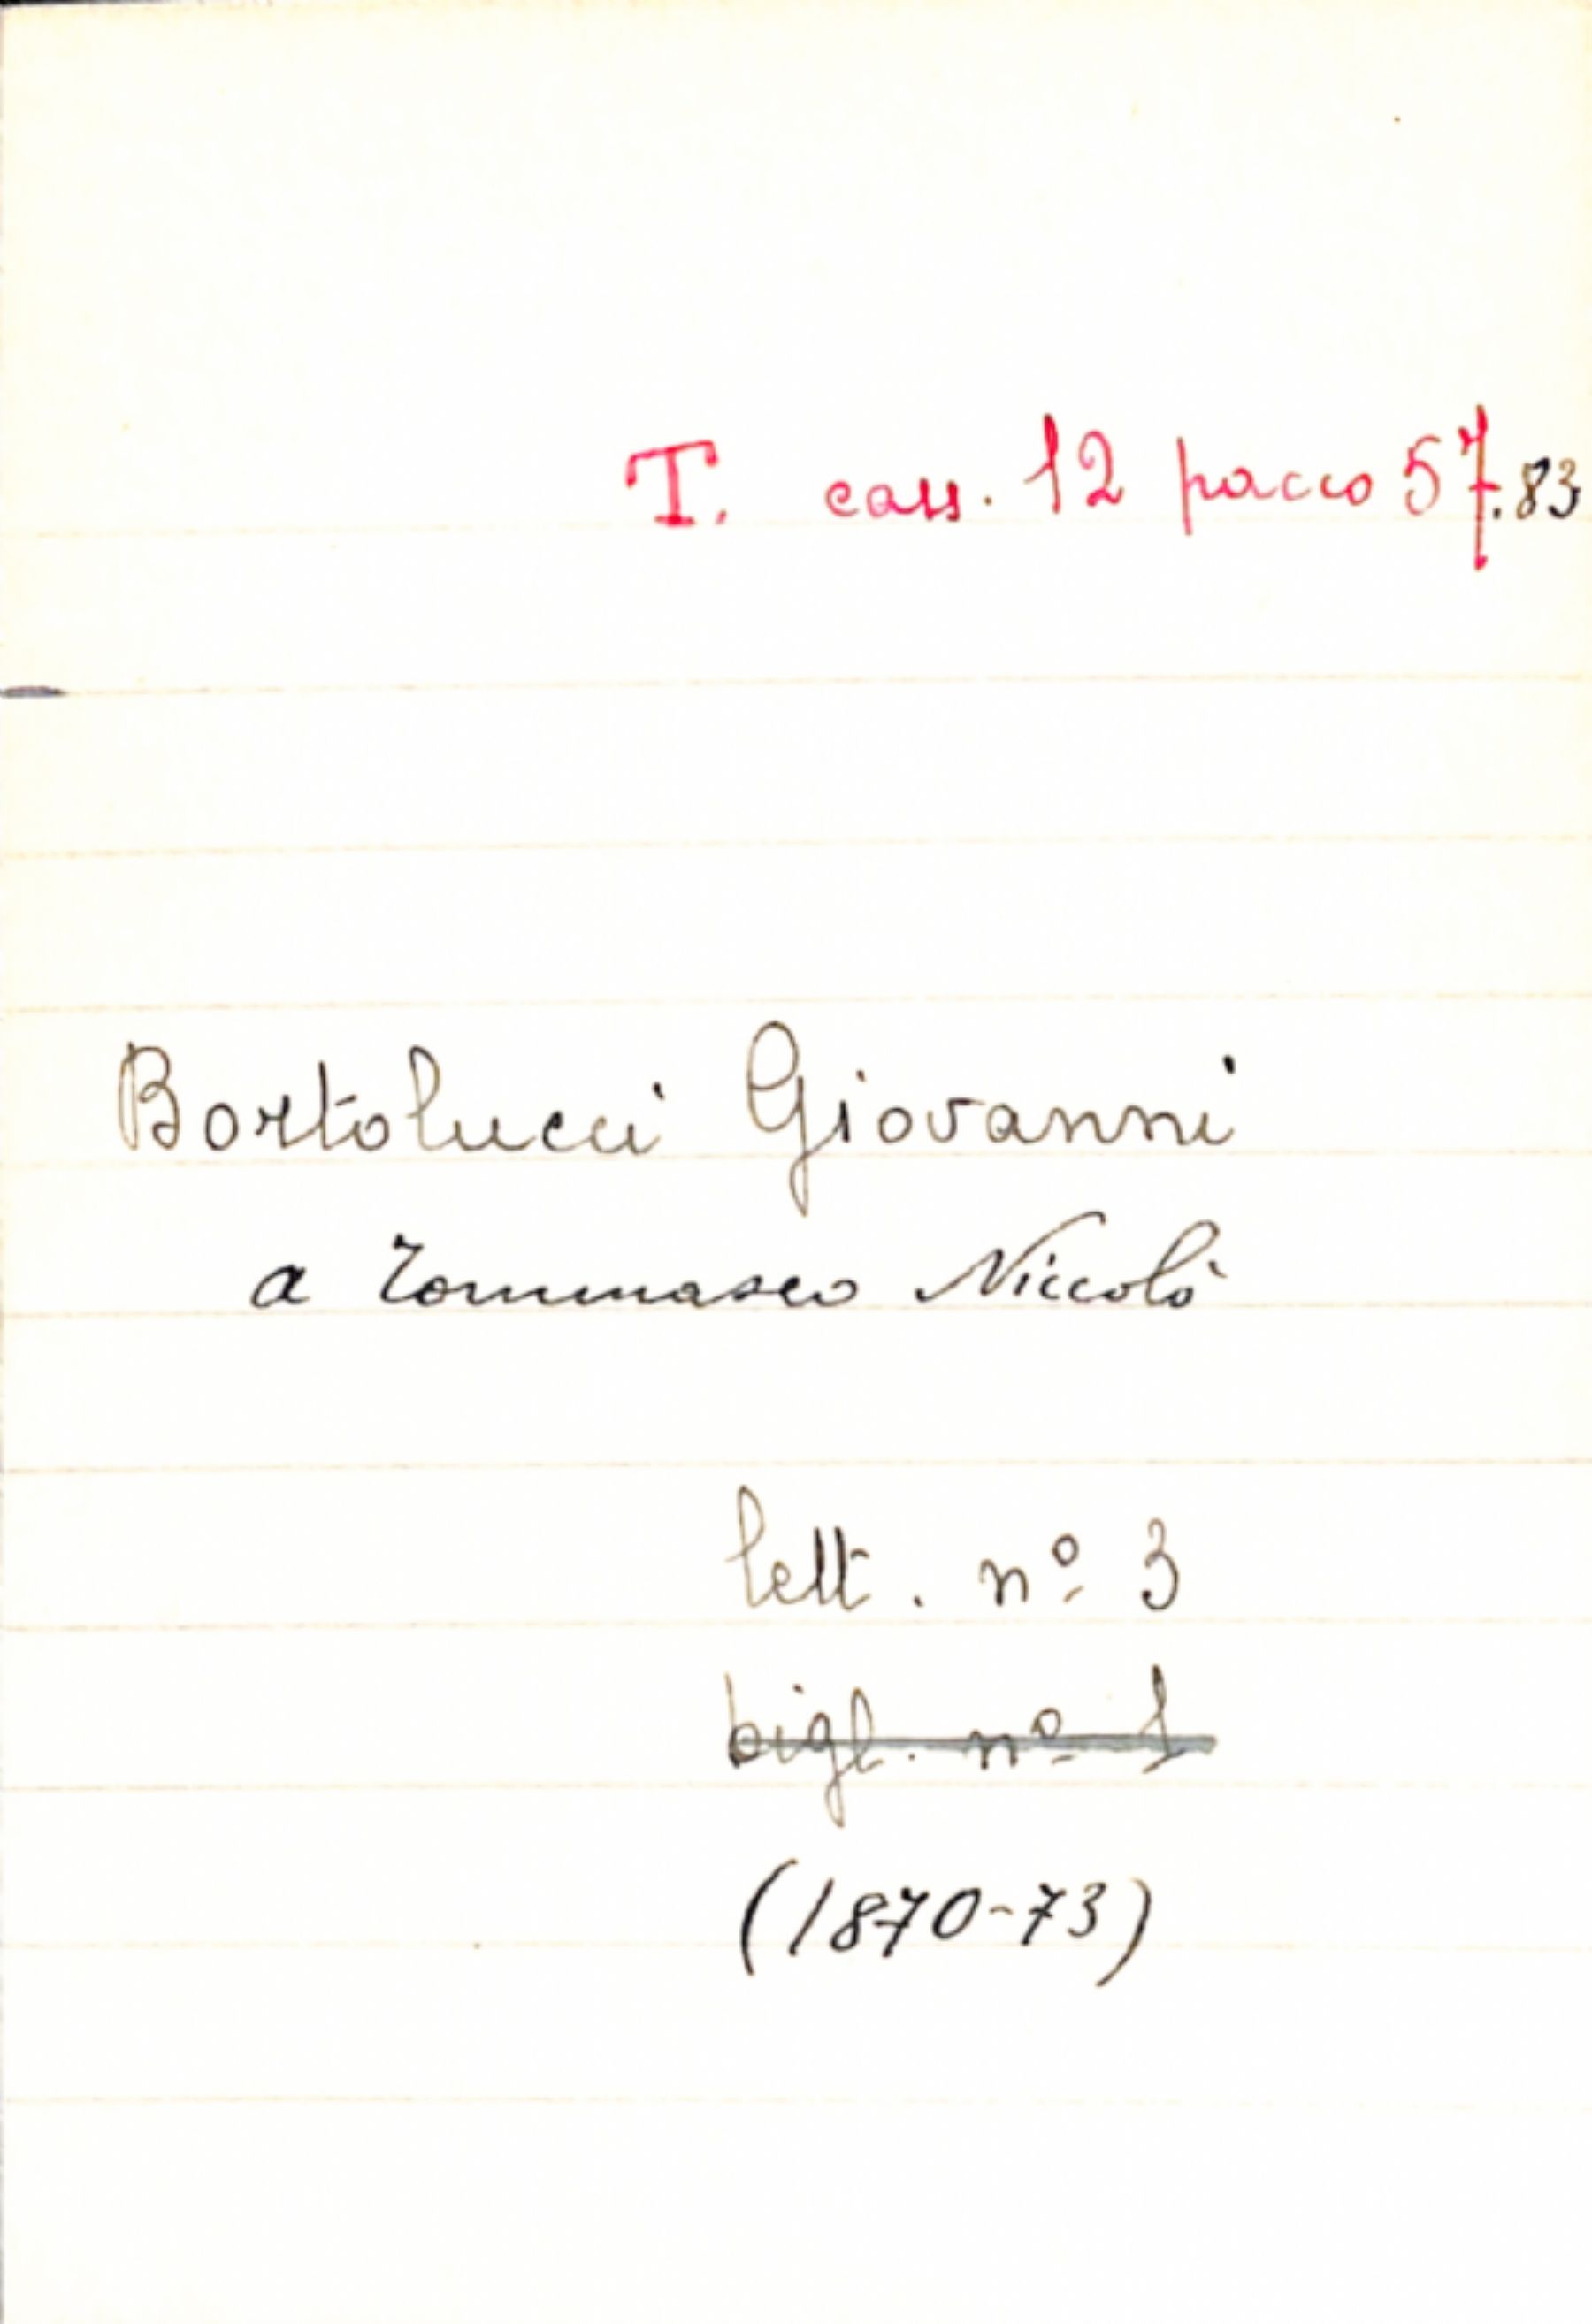 T. cass. 12 pacco 57.83
Bortolucci Giovanni
a Tommaseo Niccolò
lett. nº 3
bigl. nº 1
(1870-73)